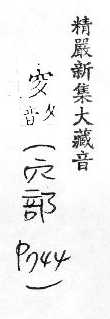 精嚴新集大藏音
夕音(穴部
P744)